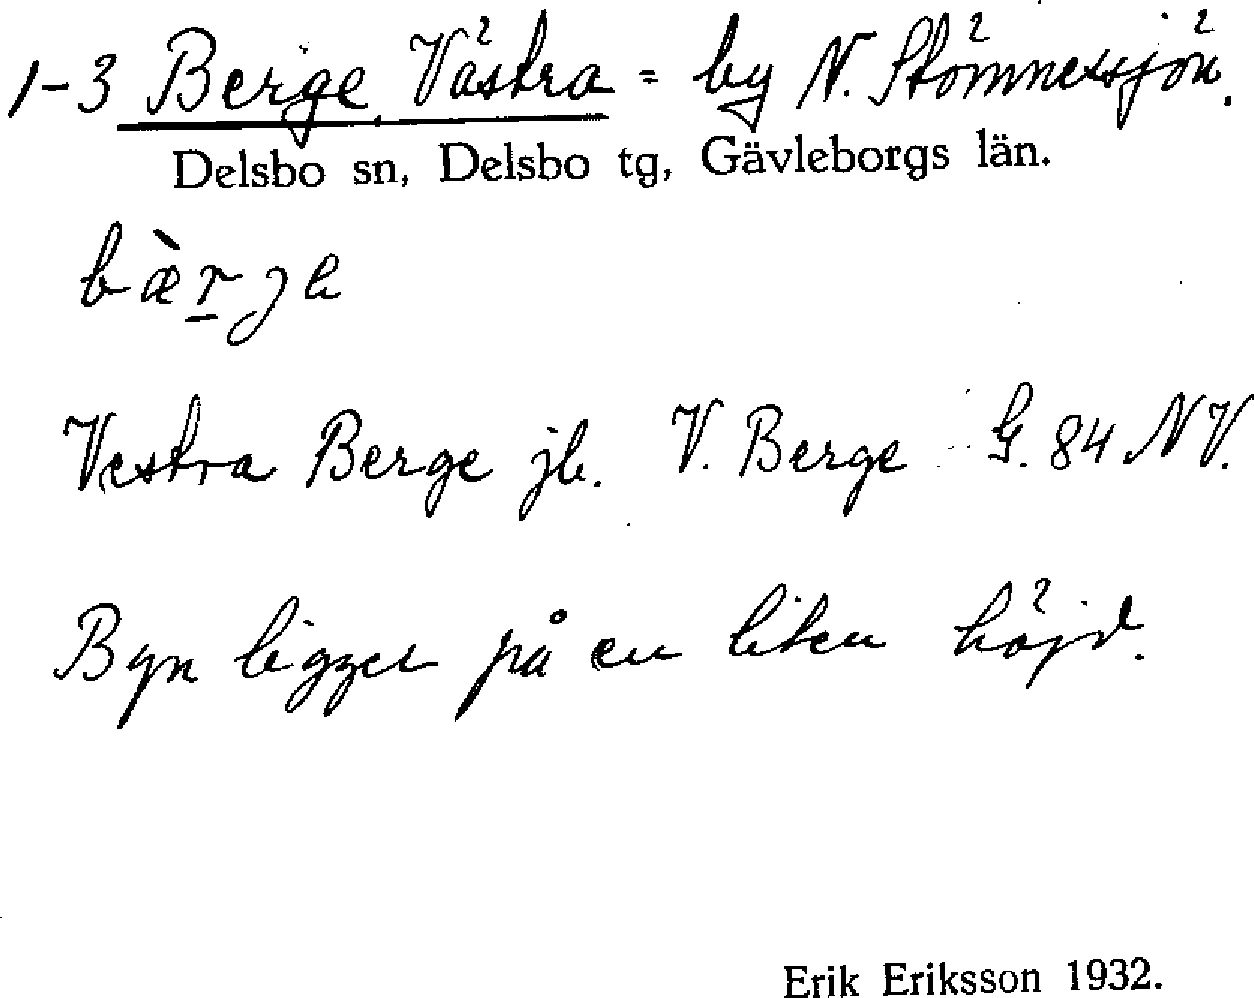 1-3 Berge, Västra = by N. Stömnessjön.
Delsbo sn, Delsbo tg, Gävleborgs län.
bæ̀r̲je
Vestra Berge jb. V. Berge G. 84 NV.
Byn ligger på en liten höjd.
Erik Eriksson 1932.